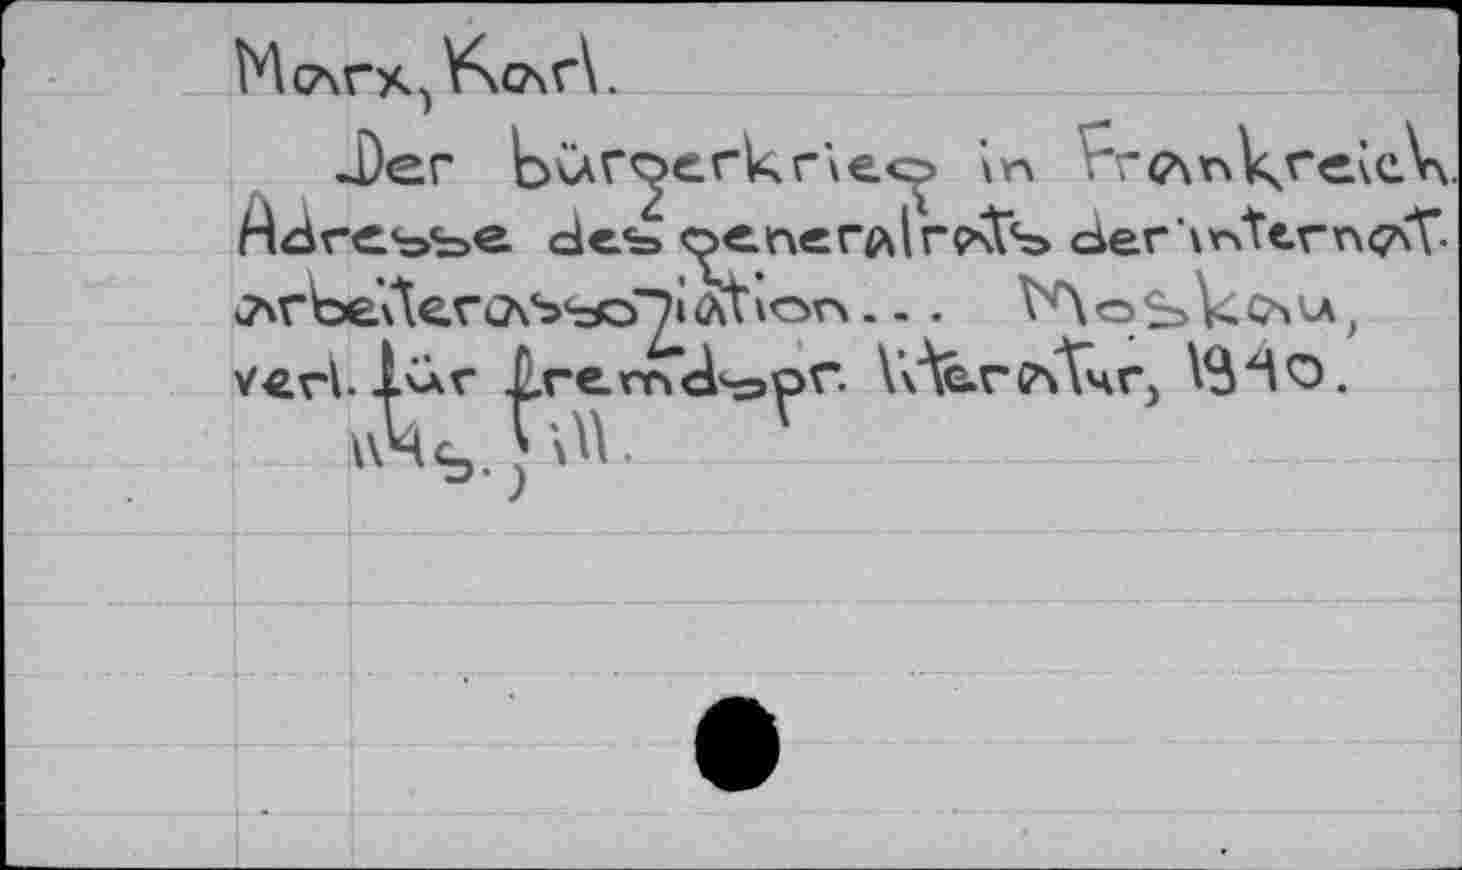 Marx, Karl.
Der bürgerkrieg in Frankreich.
Adresse des generalrats der internat.
arbeiterassoziation... Moskau,
verl. für fremdspr. literatur, 1940.
114s., ill.